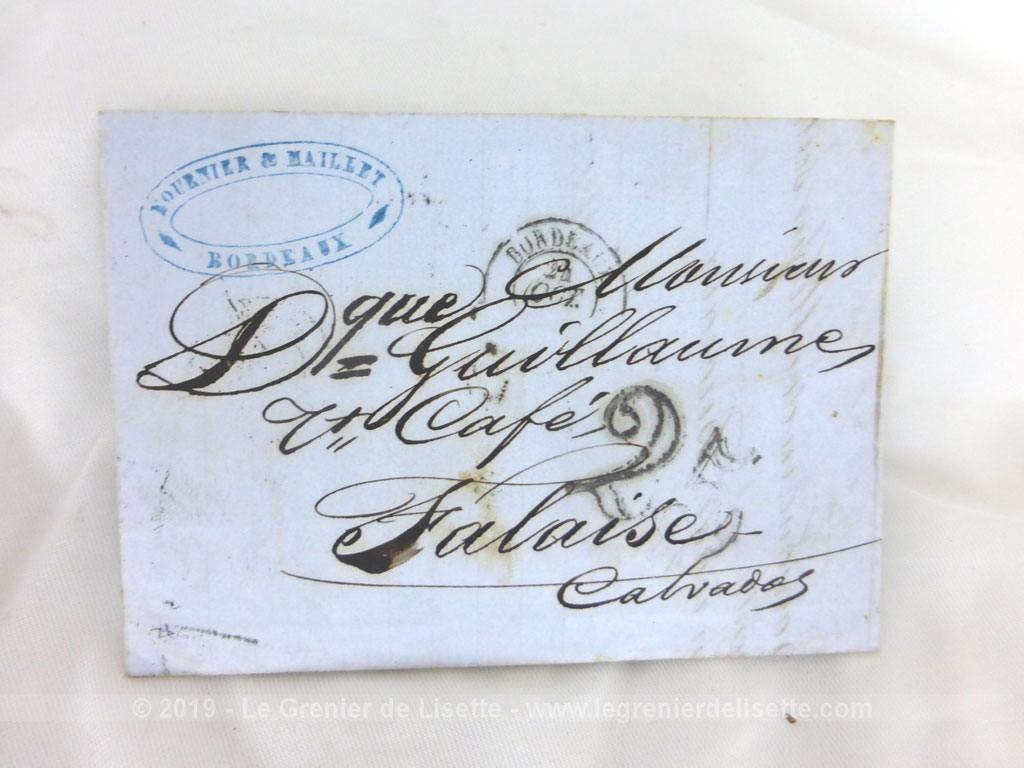 FOURNIER & MAILLET
BORDEAUX
BORDEAU
Monsieur
Dque Guillaume
Café
Falaise
Calvados
© 2019 - Le Grenier de Lisette - www.legrenierdelisette.com